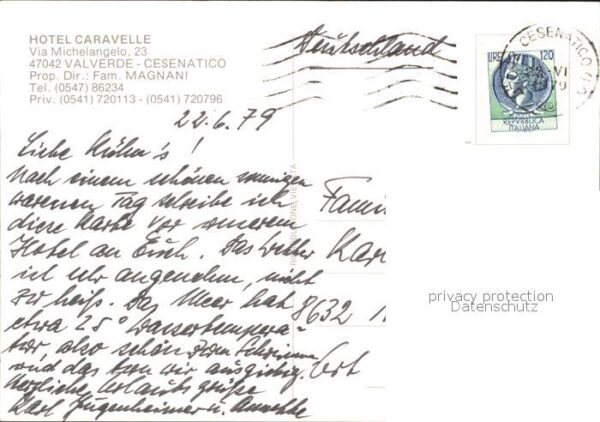 HOTEL CARAVELLE
Via Michelangelo, 23
47042 VALVERDE - CESENATICO
Prop. Dir.: Fam. MAGNANI
Tel. (0547) 86234
Priv. (0541) 720113 - (0541) 720796
Deutschland
CESENATICO
VI
79
LIRE 120
REPVBBLICA
ITALIANA
22.6.79
Liebe Kröhn's!
Nach einem schönen sonnigen
warmen Tag schreibe ich
diese Karte vor unserem
Hotel an Euch. Das Wetter
ist sehr angenehm, nicht
zu heiß. Das Meer hat
etwa 25° Wassertempera-
tur, also schön zum Schwimmen
und das tun wir ausgiebig.
Herzliche Urlaubsgrüße
Karl Jugenheimer u. Annette
Fami
Kar
8632
Ort
privacy protection
Datenschutz